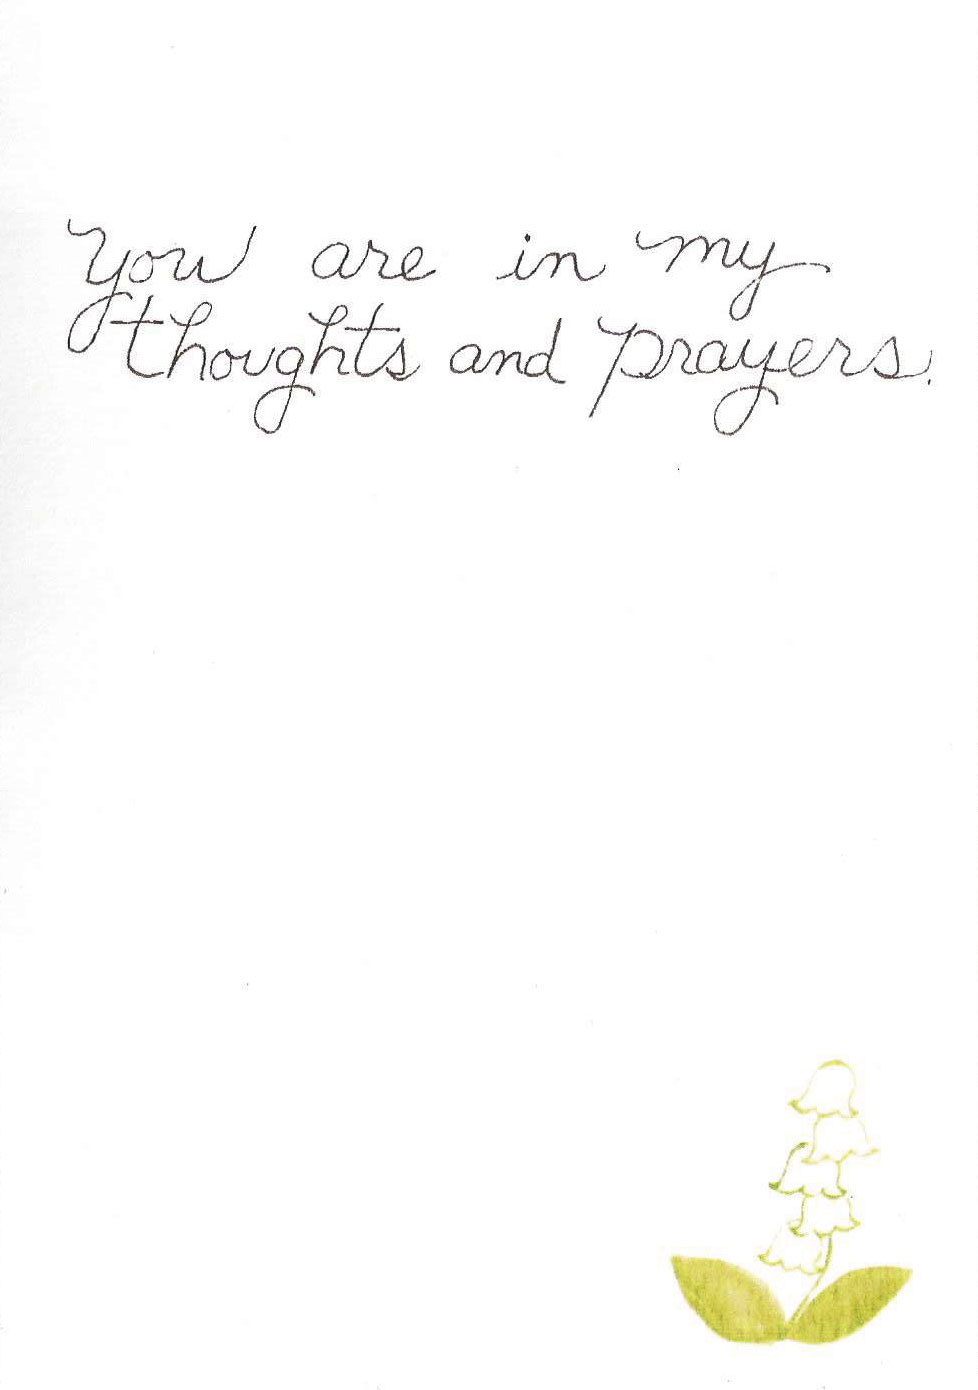 You are in my
thoughts and prayers.